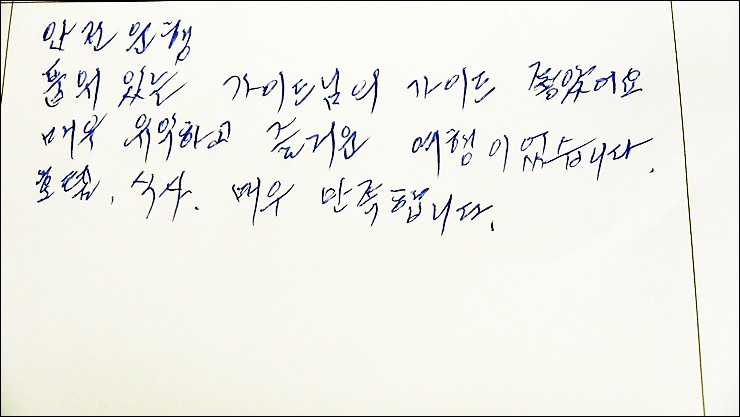 안전운행
품위 있는 가이드님의 가이드 좋았어요
매우 유익하고 즐거운 여행이었습니다.
호텔, 식사. 매우 만족합니다.